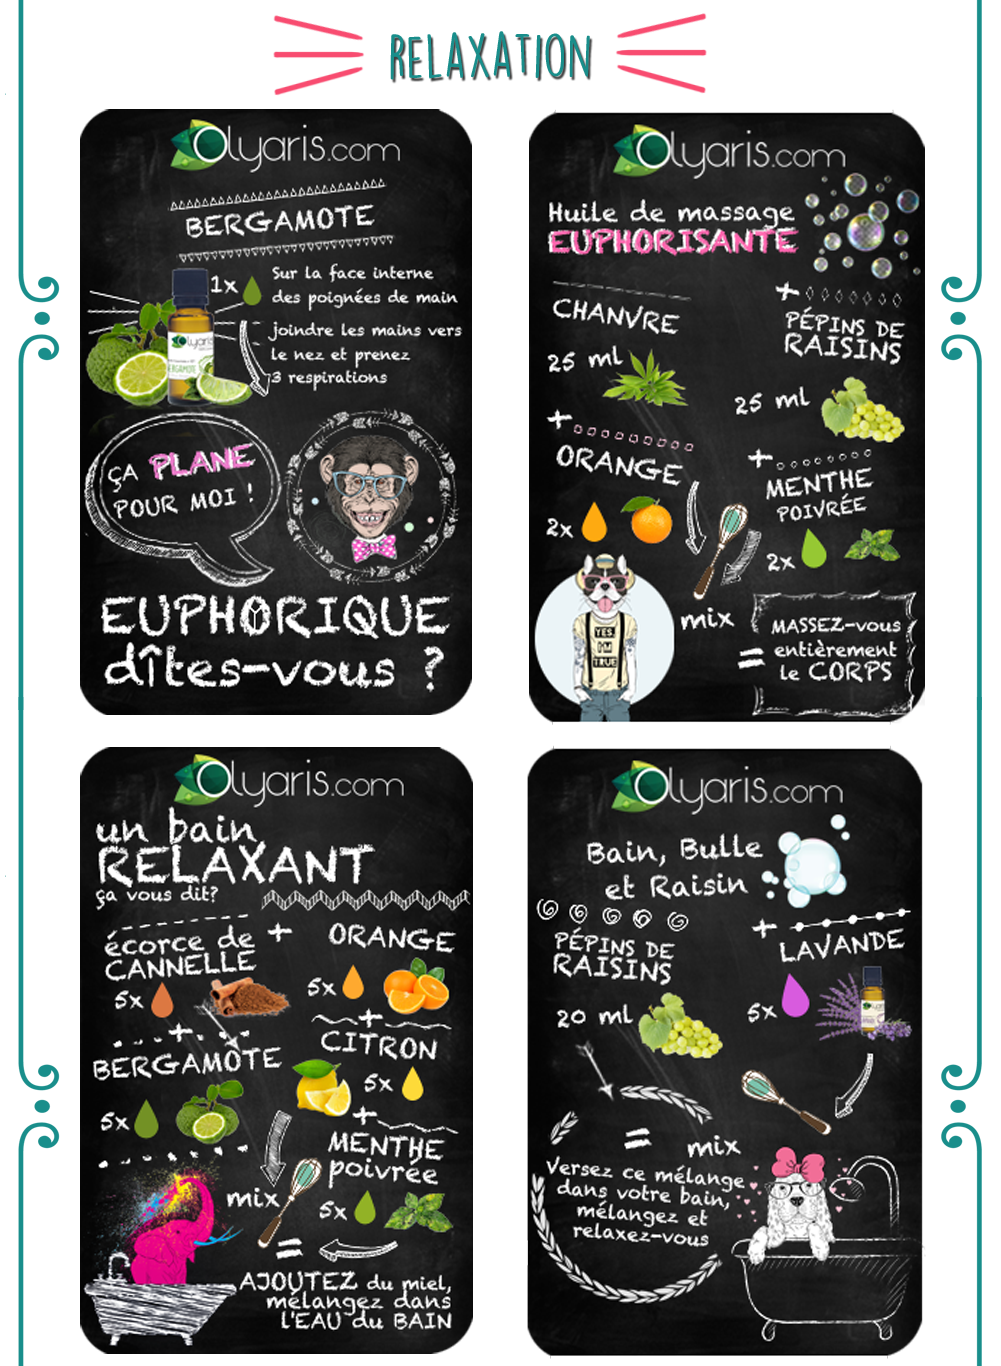 RELAXATION
Olyaris.com
BERGAMOTE
1x
Sur la face interne
des poignées de main
joindre les mains vers
le nez et prenez
3 respirations
Olyaris
BERGAMOTE
ÇA PLANE
POUR MOI !
EUPHORIQUE
dîtes-vous ?
Olyaris.com
Huile de massage
EUPHORISANTE
CHANVRE
25 ml
+
PÉPINS DE
RAISINS
25 ml
+
ORANGE
2x
+
MENTHE
POIVRÉE
2x
mix
YES
I'M
TRUE
=
MASSEZ-vous
entièrement
le CORPS
Olyaris.com
un bain
RELAXANT
ça vous dit?
écorce de
CANNELLE
5x
+
ORANGE
5x
+
BERGAMOTE
5x
+
CITRON
5x
+
MENTHE
poivrée
5x
mix
=
AJOUTEZ du miel,
mélangez dans
l'EAU du BAIN
Olyaris.com
Bain, Bulle
et Raisin
PÉPINS DE
RAISINS
20 ml
+
LAVANDE
5x
Olyaris
=
mix
Versez ce mélange
dans votre bain,
mélangez et
relaxez-vous